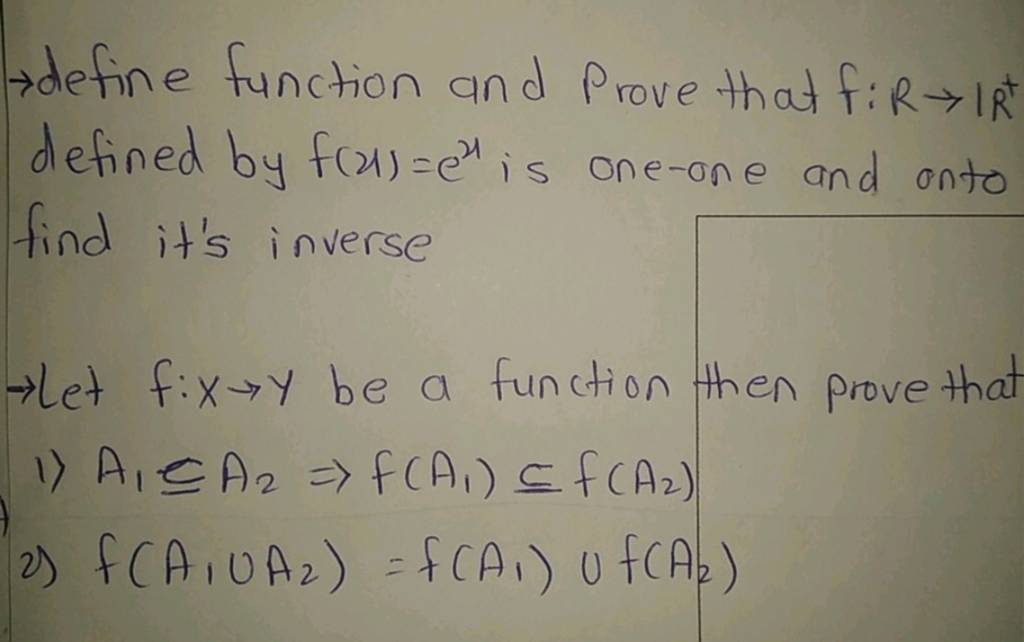 →define function and Prove that f:R→IR⁺
defined by f(x)=eˣ is one-one and onto
find it's inverse
→Let f:X→Y be a function then prove that
1) A₁⊆A₂ ⇒ f(A₁)⊆f(A₂)
2) f(A₁∪A₂) = f(A₁) ∪ f(A₂)